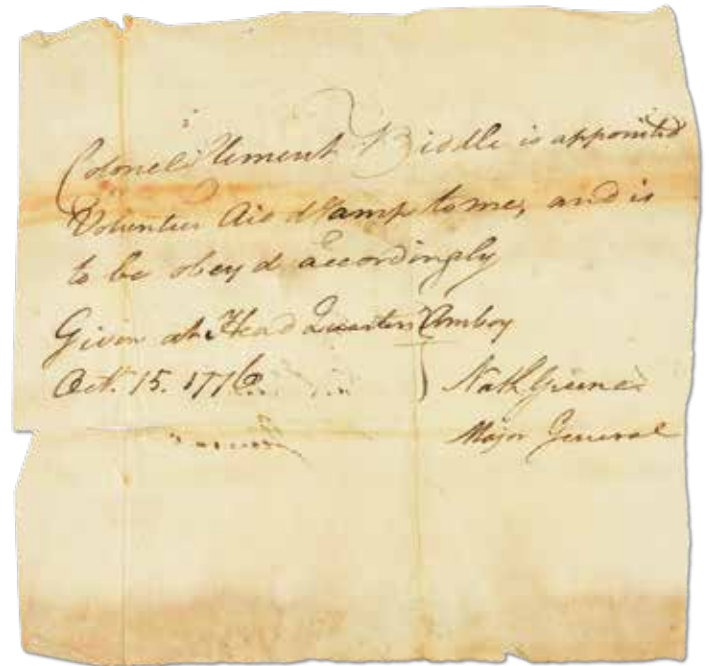 Colonel Clement Biddle is appointed
Volunteer Aid d Camp to me, and is
to be obeyd accordingly
Given at Head Quarters Amboy
Oct. 15. 1776
Nath Greene
Major General